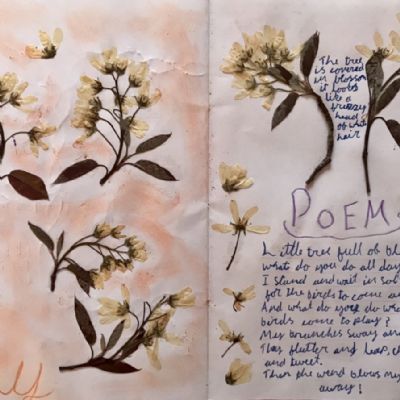 The tree
is covered
in blossom
it looks
like a
frizzy
head
of white
hair
POEM.
Little tree full of
what do you do all day
I stand and wait in
for the birds to come
And what do you do
birds come to play?
My branches sway and
They flutter and
and tweet.
Then the wind blows my
away!